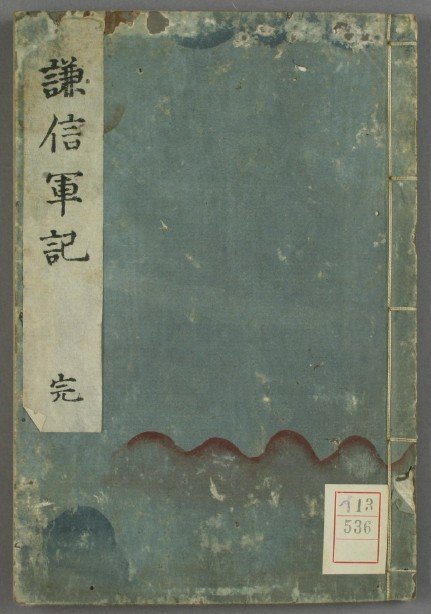 謙信軍記
完
113
536